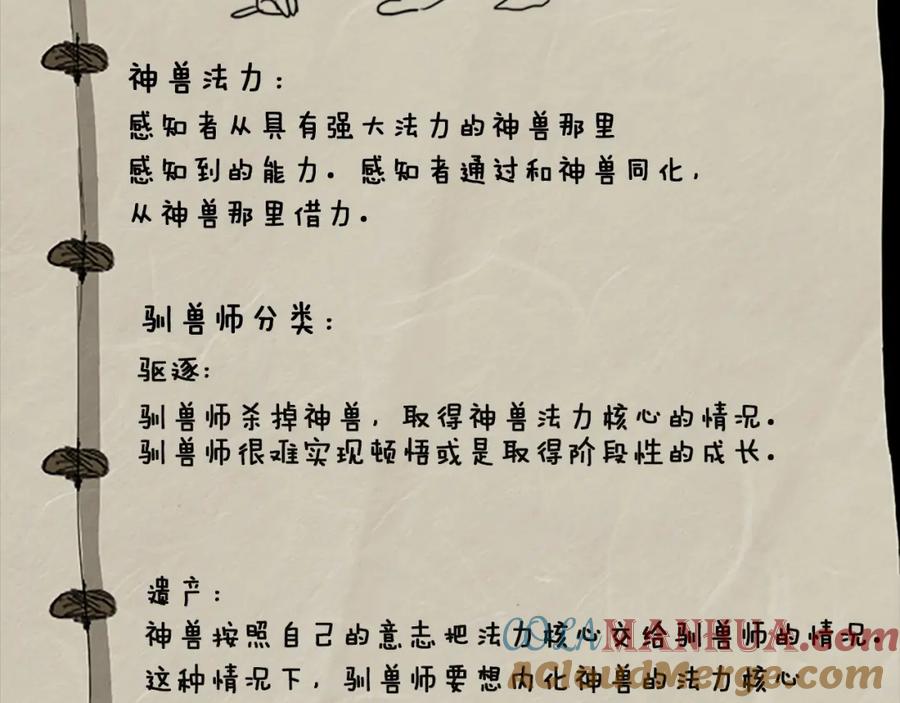 神兽法力：
感知者从具有强大法力的神兽那里
感知到的能力。感知者通过和神兽同化，
从神兽那里借力。
驯兽师分类：
驱逐：
驯兽师杀掉神兽，取得神兽法力核心的情况。
驯兽师很难实现顿悟或是取得阶段性的成长。
遗产：
神兽按照自己的意志把法力核心交给驯兽师的情况。
COLAMANHUA.com
这种情况下，驯兽师要想内化神兽的法力核心
Acloudmerge.com